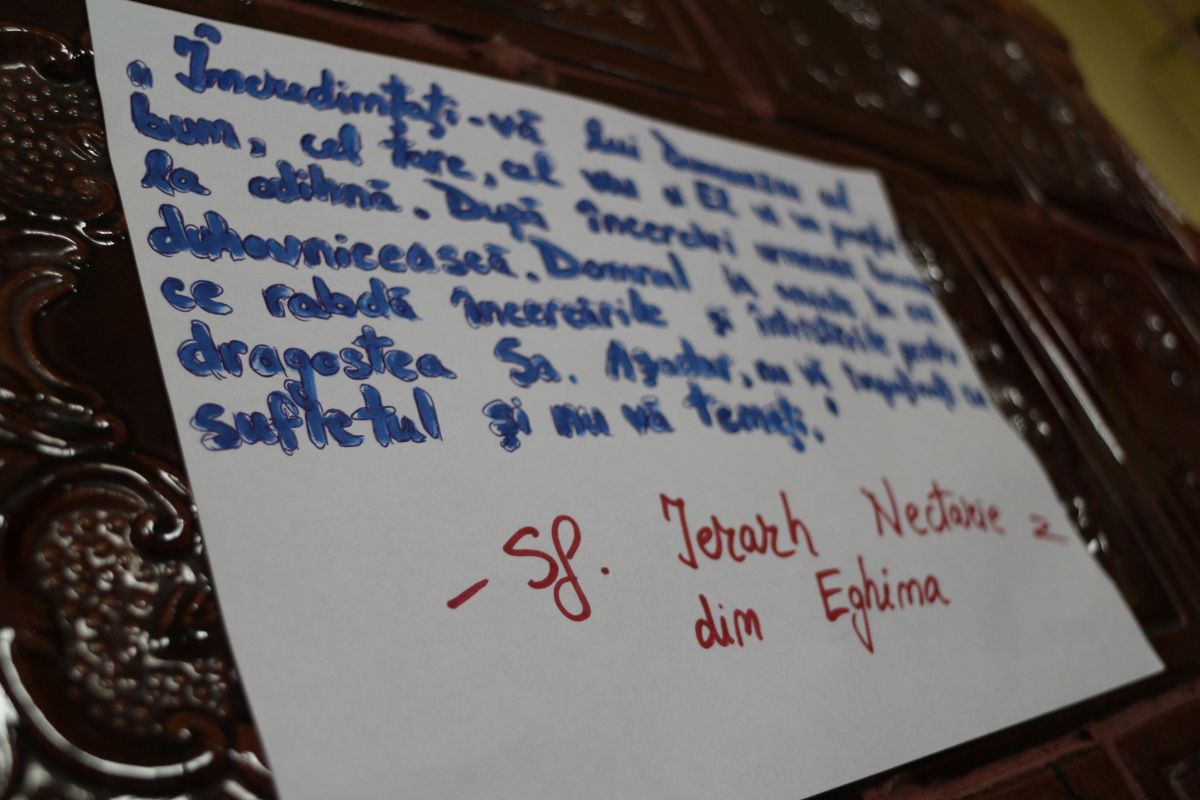 „Încredințați-vă lui Dumnezeu cel
bun, cel tare, cel viu și El vă va
la odihnă. După încercări urmează
duhovnicească. Domnul ia aminte la cei
ce rabdă încercările și întristările pentru
dragostea Sa. Așadar, nu vă împuținați cu
sufletul și nu vă temeți."
- Sf. Ierarh Nectarie -
din Eghina